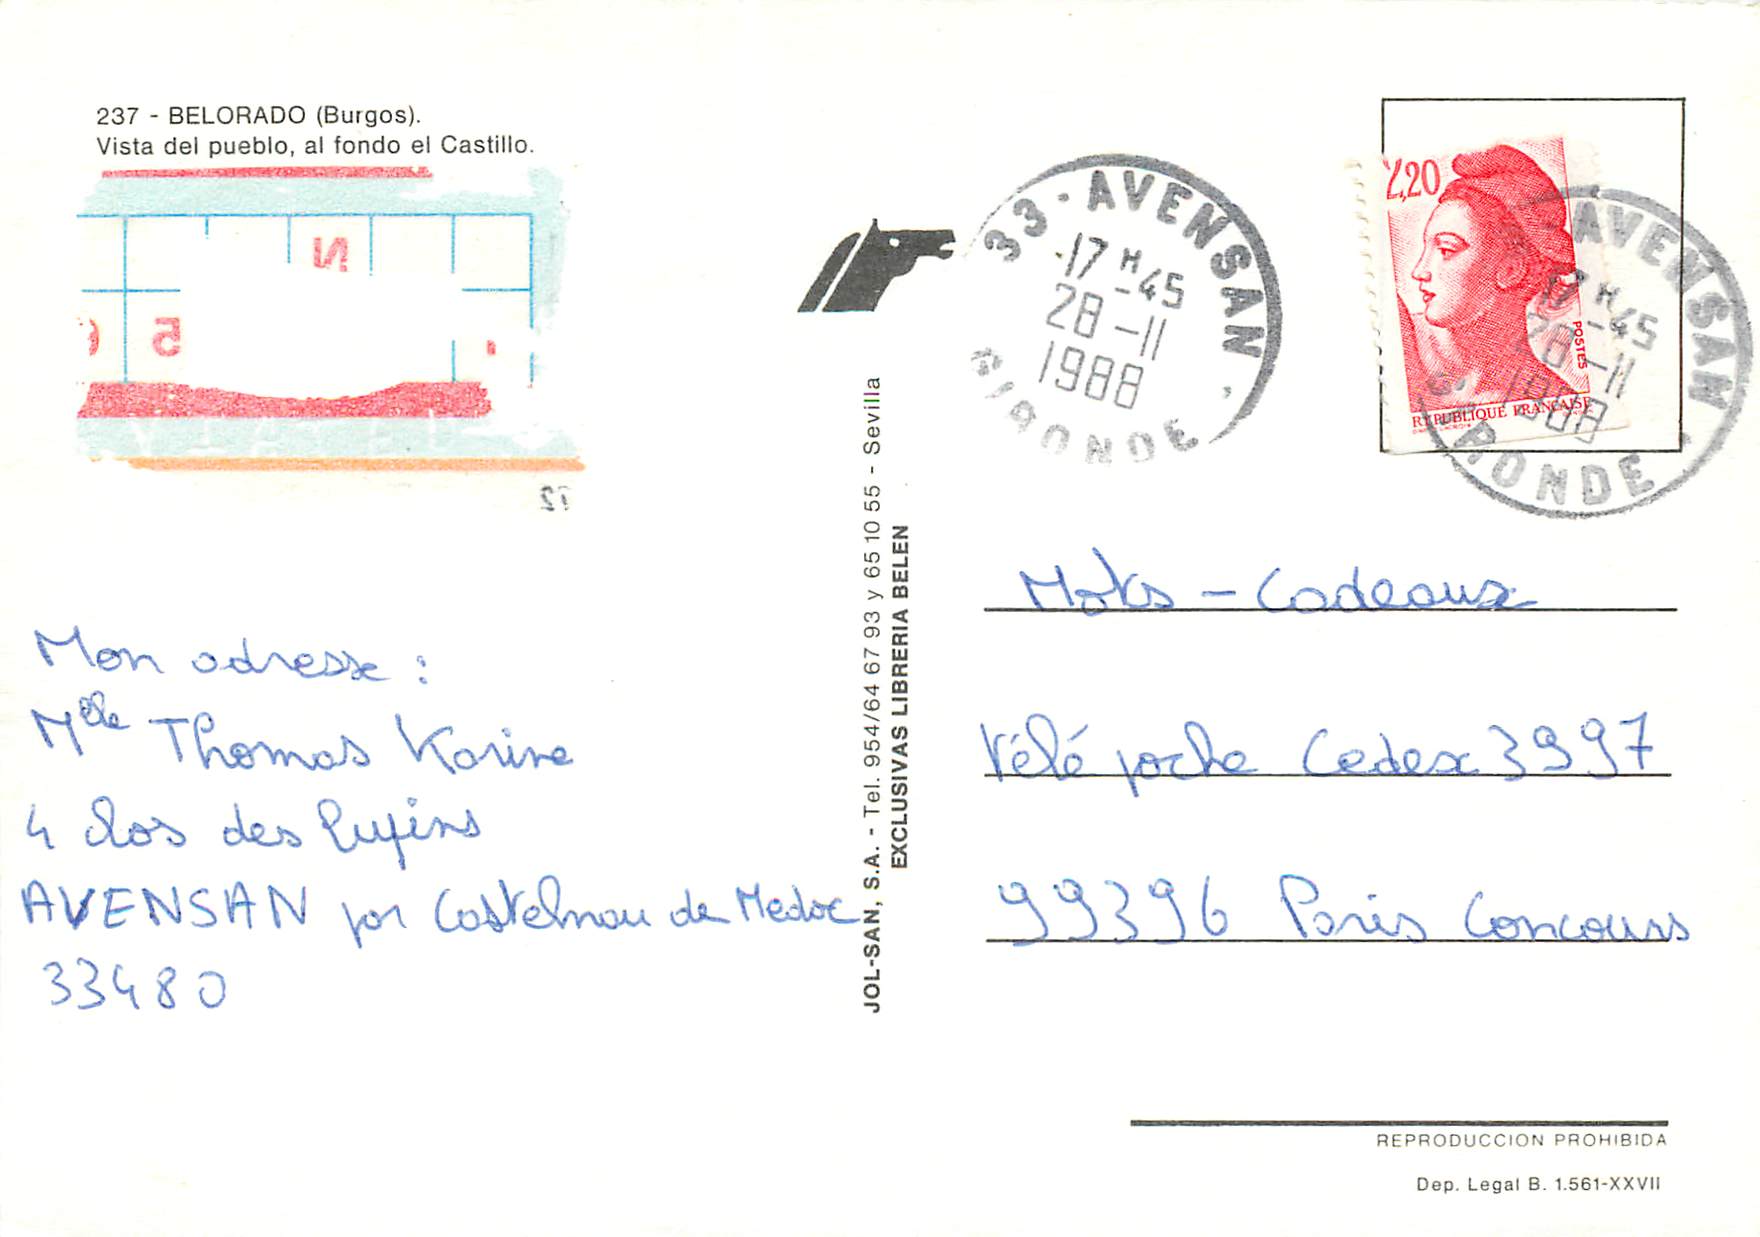 237 - BELORADO (Burgos).
Vista del pueblo, al fondo el Castillo.
N
5
Mon adresse :
Melle Thomas Karine
4 clos des Lupins
AVENSAN par Castelnau de Medoc
33480
JOL-SAN, S.A. - Tel. 954/64 67 93 y 65 10 55 - Sevilla
EXCLUSIVAS LIBRERIA BELEN
33 - AVENSAN
17 H -45
28 -11
1988
GIRONDE
2,20
POSTES
REPUBLIQUE FRANÇAISE
AVENSAN
17 H -45
28 -11
1988
GIRONDE
Mots - Cadeaux
Télé poche Cedex 3997
99396 Paris Concours
REPRODUCCION PROHIBIDA
Dep. Legal B. 1.561-XXVII